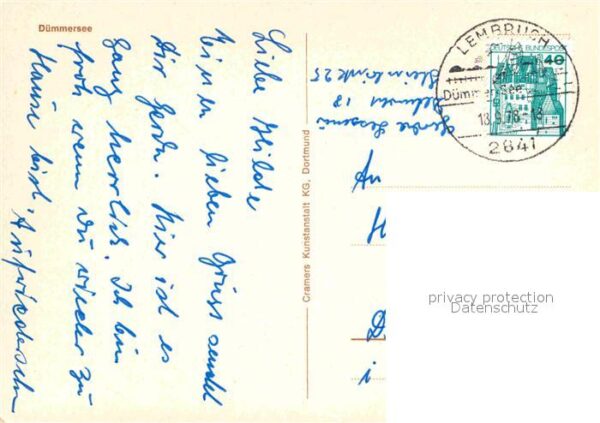 Dümmersee
Liebe Hilde
Einen lieben Gruss sendet
Dir Gerda. Hier ist es
ganz herrlich. Ich bin
froh wenn Du wieder zu
Hause bist. Aufwiedersehn
Cramers Kunstanstalt KG, Dortmund
Gerda
18
25
LEMBRUCH
Dümmer-See
18.9.78-18
2841
DEUTSCHE BUNDESPOST
40
privacy protection
Datenschutz